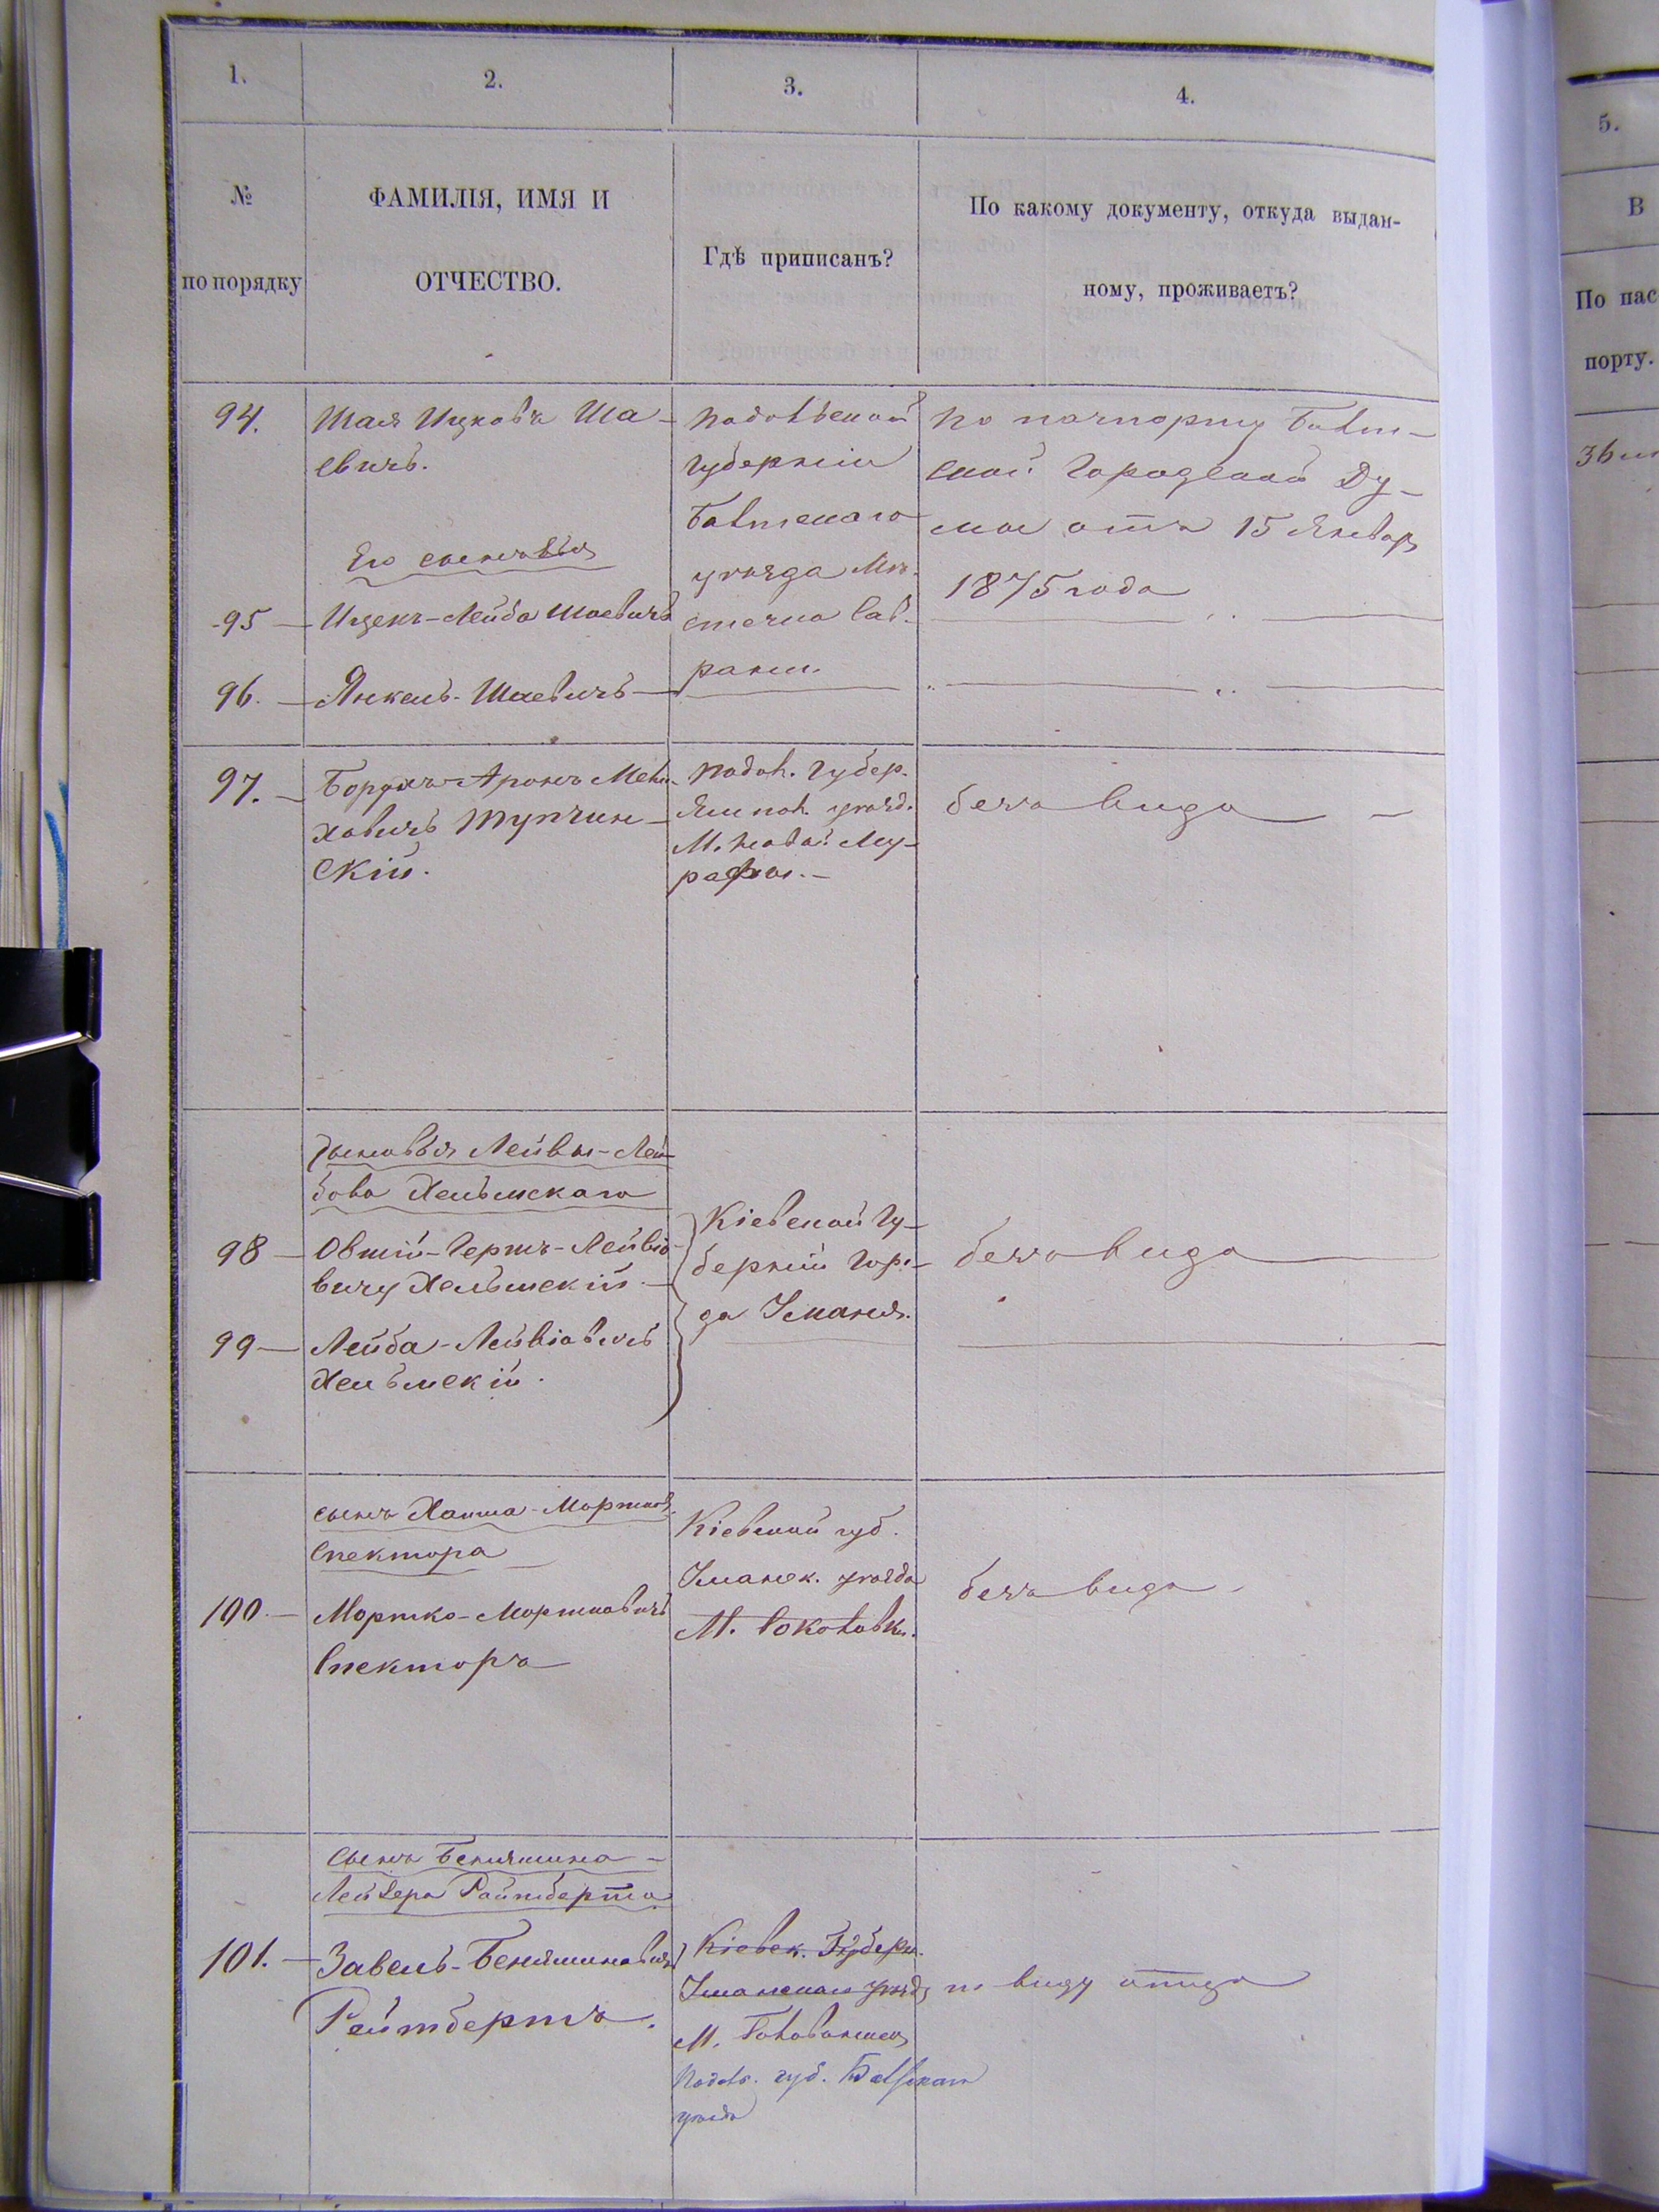 1.
2.
3.
4.
5.
№
по порядку
ФАМИЛІЯ, ИМЯ И
ОТЧЕСТВО.
Гдѣ приписанъ?
По какому документу, откуда выдан-
ному, проживаетъ?
В
По пас
порту.
94.
Шая Ицковъ Ша-
евичъ.
Подольской
губерніи
Балтскаго
уѣзда Мѣ-
стечка Сав-
рани.
По паспорту Балт-
ской Городской Ду-
мы отъ 15 Января
1875 года
Его сыновья
95
Ицекъ-Лейба Шаевичъ
96.
Янкель-Шаевичъ
97.
Борухъ-Аронъ Мена-
ховичъ Тупчин-
скій.
Подол. Губер.
Ямпол. уѣзд.
М. Новой Му-
рафы.
безъ вида
Сыновья Лейвы-Лей-
бова Хельмскаго
98
Овшій-Гершъ-Лейвіо-
вичъ Хельмскій.
Кіевской Гу-
берніи Горо-
да Уманя.
безъ вида
99
Лейба-Лейвіовичъ
Хельмскій.
сынъ Хаима-Мортков.
Спектора
100.
Мортко-Мортковичъ
Спекторъ
Кіевской губ.
Уманск. уѣзда
М. Соколовки.
безъ вида
Сынъ Беньямина-
Лейзера Райтберта
101.
Завель-Беньяминовичъ
Рейтбертъ.
Кіевск. Губерн.
Уманскаго уѣзда
М. Голованевск
Подол. губ. Балтскаго
уѣзда
по виду отца